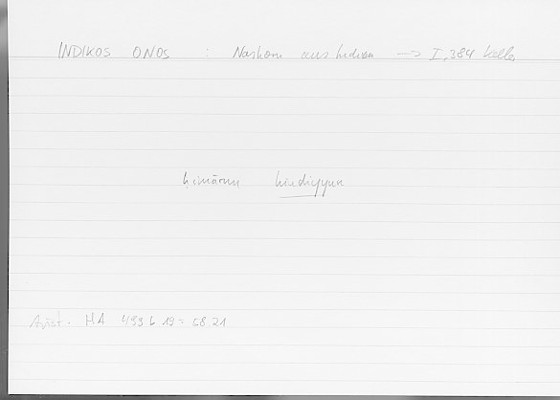 INDIKOS ONOS : Nashorn aus Indien → I, 384 Keller
ḥimārun hindiyyun
Arist. HA 499 b 19 = 58 21